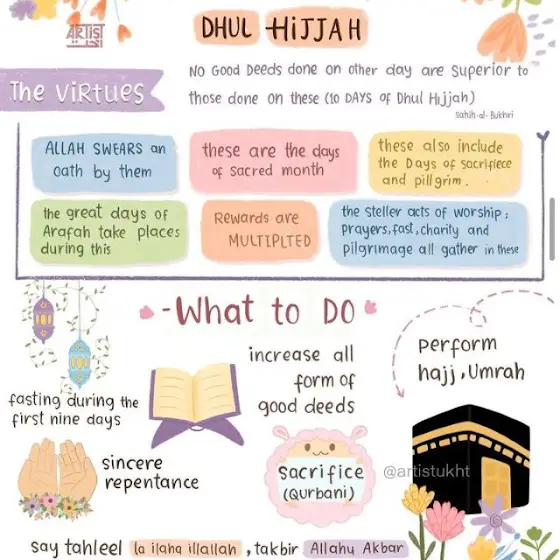 ARTIST
DHUL HIJJAH
The VIRTUES
NO GOOD DEEDS DONE ON OTHER DAY ARE SUPERIOR to
those done on these (10 DAYS of Dhul Hijjah)
Sahih-al-Bukhri
ALLAH SWEARS an
oath by them
these are the days
of sacred month
these also include
the Days of sacrifiece
and pillgrim.
the great days of
Arafah take places
during this
Rewards are
MULTIPLTED
the steller acts of worship:
prayers, fast, charity and
pilgrimage all gather in these
What to DO
increase all
form of
good deeds
perform
hajj, Umrah
fasting during the
first nine days
sincere
repentance
Sacrifice
(Qurbani)
@artistukht
say tahleel la ilaha illallah, takbir Allahu Akbar